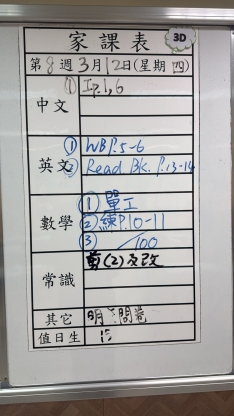 家課表
3D
第8週3月12日(星期四)
中文
① Ip.1,6
英文
① WB P.5-6
② Read Bk. P.13-14
數學
① 單工
② 練P.10-11
③ /100
常識
剪(2)及改
其它
明 問卷
值日生